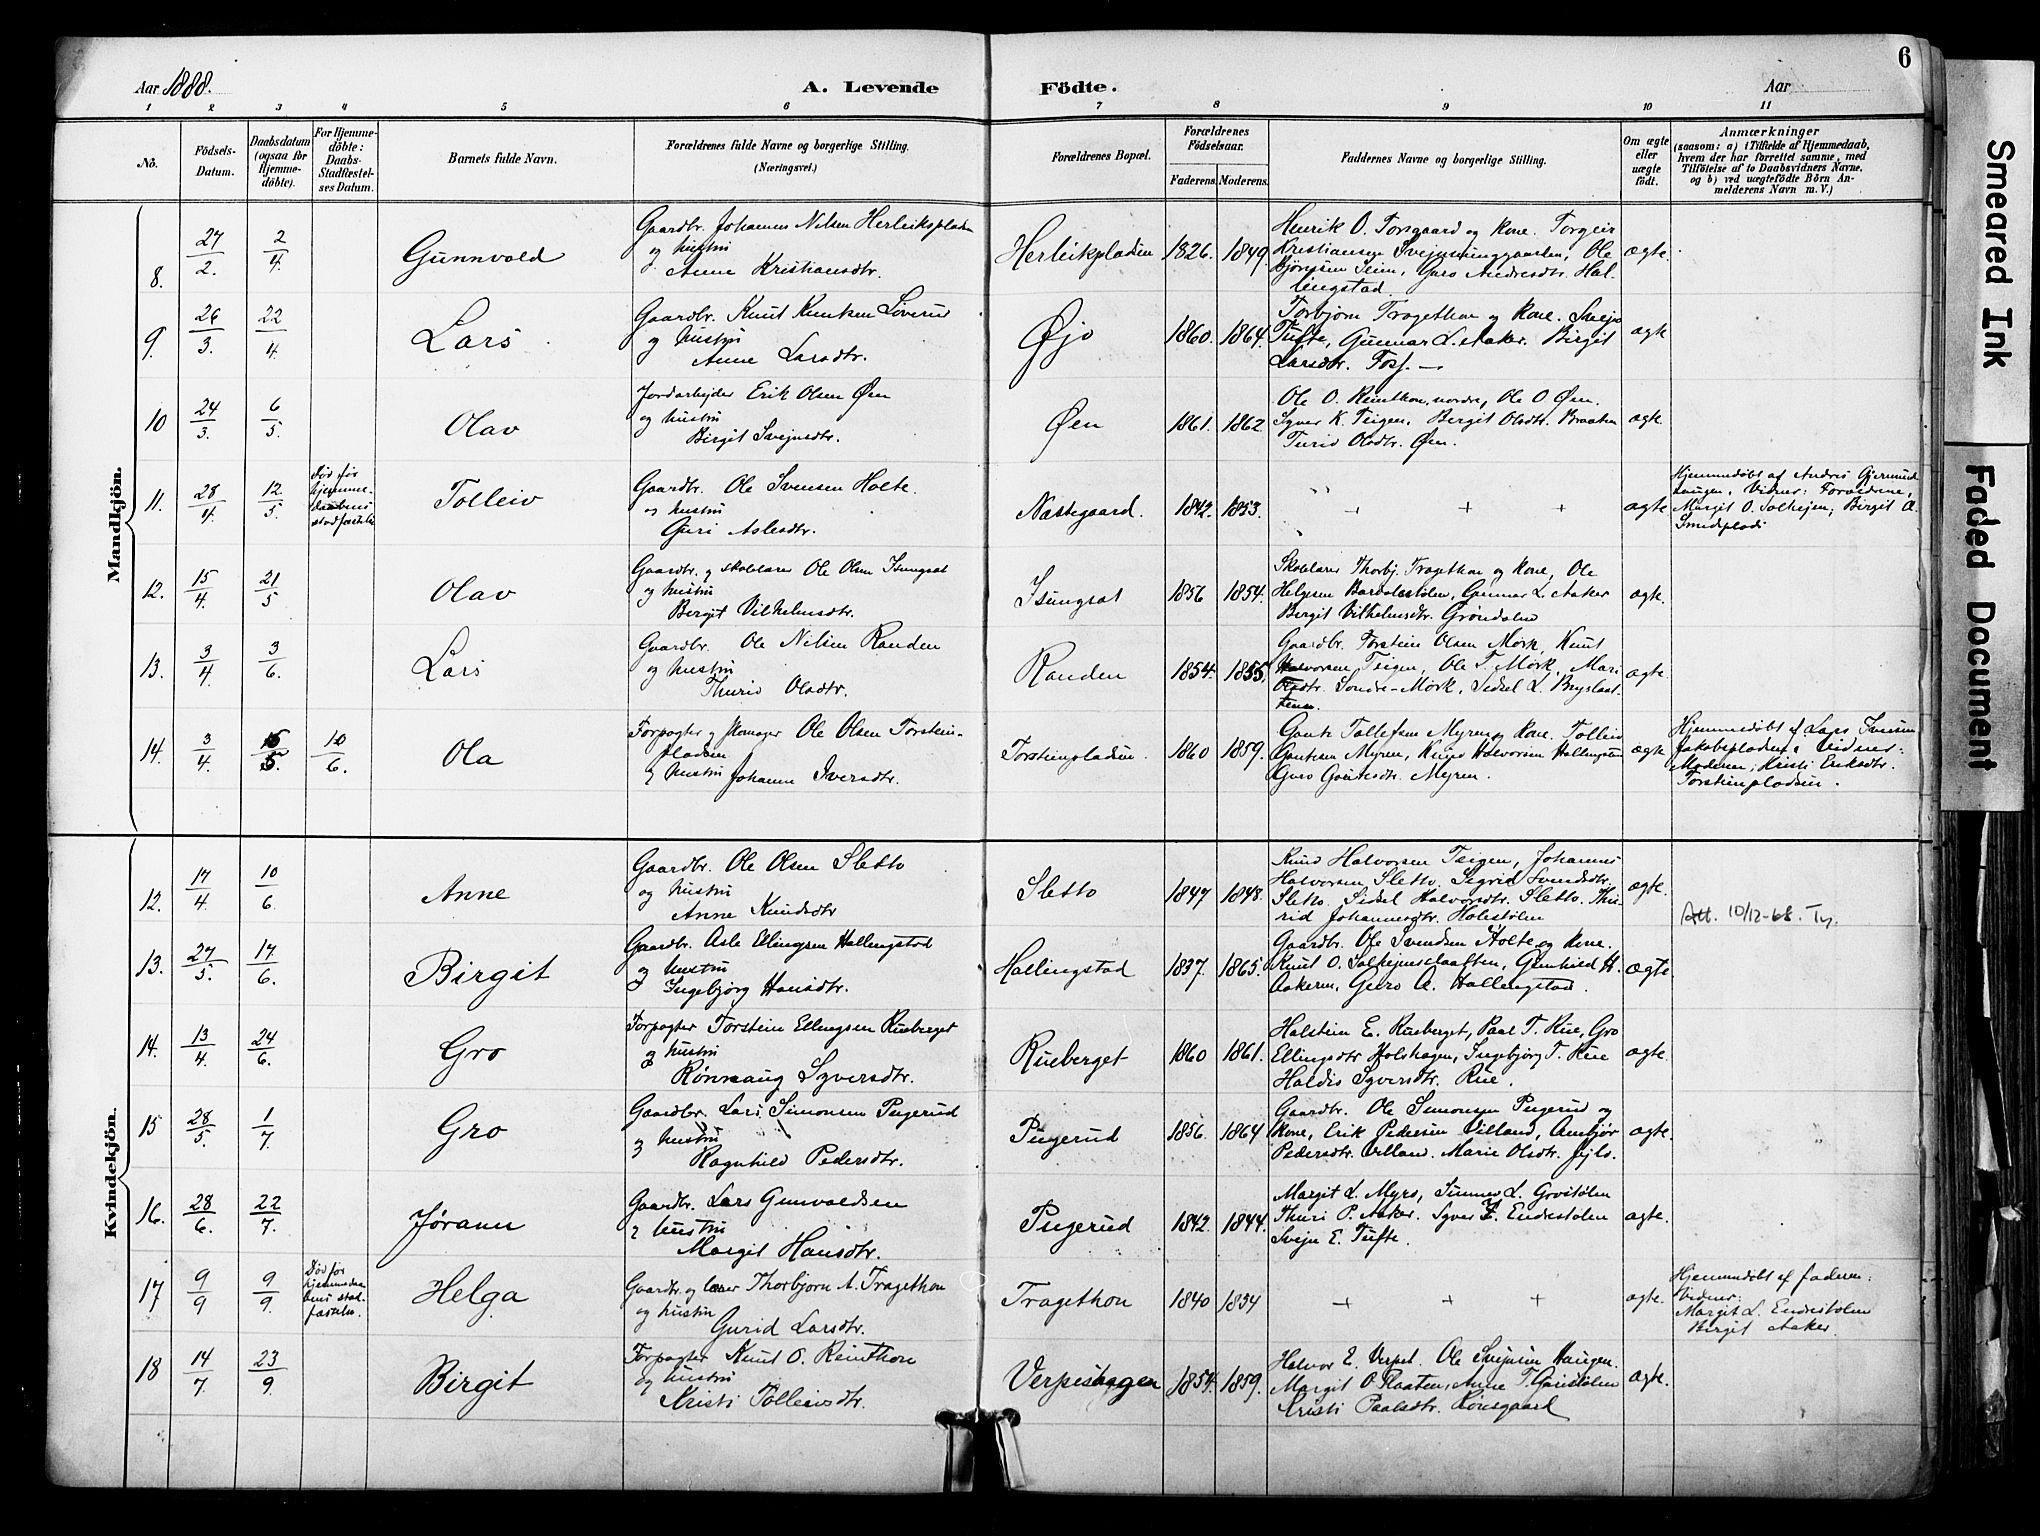 6
Aar 1888.
A. Levende Födte.
Aar
1 2 3 4 5 6 7 8 9 10 11
No.
Födsels-Datum.
Daabsdatum (ogsaa for Hjemme-döbte).
For Hjemme-döbte: Daabs-Stadfæstel-ses Datum.
Barnets fulde Navn.
Forældrenes fulde Navne og borgerlige Stilling.
(Næringsvei.)
Forældrenes Bopæl.
Forældrenes Födselsaar.
Faderens. Moderens.
Faddernes Navne og borgerlige Stilling.
Om ægte eller uægte födt.
Anmærkninger
(saasom: a) i Tilfælde af Hjemmedaab,
hvem der har forrettet samme, med
Tilföielse af to Daabsvidners Navne,
og b) ved uægtefödte Börn An-
melderens Navn m. V.)
Mandkjön.
8. 27/2. 2/4. Gunnvald
Gaardbr. Johannes Nilsen Herleiksplads
og hustru
Anne Kristiansdtr.
Herleikpladsen 1826. 1849.
Henrik O. Torsgaard og Kone. Torgeir
Kristiansen Ole
Bjørnsen Seim, Guro Andresdtr. Hal-
lingstad
ægte.
9. 26/3. 22/4 Lars
Gaardbr. Knut Knutsen Løverud
og hustru
Anne Larsdtr.
Øjo 1860. 1864.
Torbjørn Tragethon og Kone. Svejn
Tufte, Gunnar L. Aaker. Birgit
Larsdtr. Foss. —
ægte
10 24/3. 6/5. Olav
Jordarbejder Erik Olsen Øen
og hustru
Birgit Svejnsdtr.
Øen 1861. 1862.
Ole O. Reinthon, nordre, Ole O. Øen.
Syver K. Teigen. Birgit Olsdtr. Braaten
Turid Olsdtr. Øen.
ægte.
11. 28/4 12/5.
Død før
hjemme-
daabens
stadfæstelse
Tolleiv
Gaardbr. Ole Svensen Holte.
og hustru
Guri Aslesdtr.
Næstegaard. 1842. 1853.
+ + +
ægte
Hjemmedøbt af Andris Gjermund
haugen. Vidner: Forældrene,
Margit O. Solhejm; Birgit A.
Smedplads
12. 15/4. 21/5 Olav
Gaardbr. og skolelærer Ole Olsen Isungset
og hustru
Birgit Vilhelmsdtr.
Isungset 1856 1854.
Skolelærer Thorbj. Tragethon og Kone, Ole
Helgesen Bardalestølen, Gunnar L. Aaker
Birgit Vilhelmsdtr. Grøndalen
ægte.
13. 3/4 3/6. Lars
Gaardbr. Ole Nilsen Randen
og hustru
Thurid Olsdtr.
Randen 1854. 1855.
Gaardbr. Torstein Olsen Mørk, Knut
Halvorsen Teigen, Ole T. Mørk, Mari
Olsdtr. Søndre-Mørk, Sidsel L.
ægte.
14. 3/4 5. 10/6. Ola
Forpagter og skomager Ole Olsen Torstein-
pladsen
og hustru Johanne Iversdtr.
Torsteinpladsen. 1860 1859.
Gaute Tollefsen Myren og Kone. Tolleiv
Gautesen Myren, Halvorsen Hallingstad
Guro Gautesdtr. Myren.
ægte
Hjemmedøbt af Lars Iversen
Jakobspladsen. Vidner:
Moderen; Kristi Eriksdtr.
Torsteinpladsen.
Kvindekjön.
12. 17/4. 10/6 Anne
Gaardbr. Ole Olsen Sletto
og hustru
Anne Knudsdtr
Sletto 1847 1848.
Knud Halvorsen Teigen, Johannes
Halvorsen Sletto. Sigrid Svendsdtr.
Sletto. Sidsel Halvorsdtr. Sletto. Thu-
rid Johannesdtr. Holestølen
ægte.
Att. 10/12-68. Ty.
13. 27/5. 17/6. Birgit
Gaardbr. Asle Ellingsen Hallingstad
og hustru
Ingebjørg Hansdtr.
Hallingstad 1837. 1865.
Gaardbr. Ole Svendsen Holte og Kone.
Knut O. Solhejmslaatten, Gunhild H.
Aakeren, Guro A. Hallingstad.
ægte
14. 13/4. 24/6. Gro
Forpagter Torstein Ellingsen Rueberget
og hustru
Rønnaug Syversdtr.
Rueberget 1860 1861.
Halstein E. Rueberget, Paal T. Rue, Gro
Ellingsdtr Holshagen, Ingebjørg T. Rue
Haldis Syversdtr. Rue.
ægte.
15 28/5. 1/7. Gro
Gaardbr. Lars Simonsen Pugerud
og hustru
Ragnhild Pedersdtr.
Pugerud 1856. 1864
Gaardbr. Ole Simonsen Pugerud og
Kone, Erik Pedersen Villand, Ambjør
Pedersdtr. Villand. Marie Olsdtr. Jegls.
ægte.
16. 28/6. 22/7. Jørann
Gaardbr. Lars Gunvaldsen
og hustru
Margit Hansdtr.
Pugerud 1842. 1844.
Margit L. Myro, Gunnar L. Grøstølen
Thuri P. Aaker. Syver Endrestølen
Svejn E. Tufte.
ægte.
17 9/9 9/9.
Død før
hjemmedaa
bens stad-
fæstelse.
Helga
Gaardbr. og lærer Thorbjørn A. Tragethon
og hustru
Gurid Larsdtr.
Tragethon 1840 1834
+ + +
ægte.
Hjemmedøbt af faderen.
Vidner:
Margit L. Endrestølen
Birgit Aaker.
18 14/7. 23/9 Birgit
Forpagter Knut O. Reinthon
og hustru
Kristi Tolleivsdtr.
Verpeshagen 1854. 1859.
Halvor E. Verpet. Ole Svejnsen Haugen.
Margit O. Raaten, Anne T. Garstølen
Kristi Paalsdtr. Rønsgaard
ægte.
Smeared Ink
Faded Document